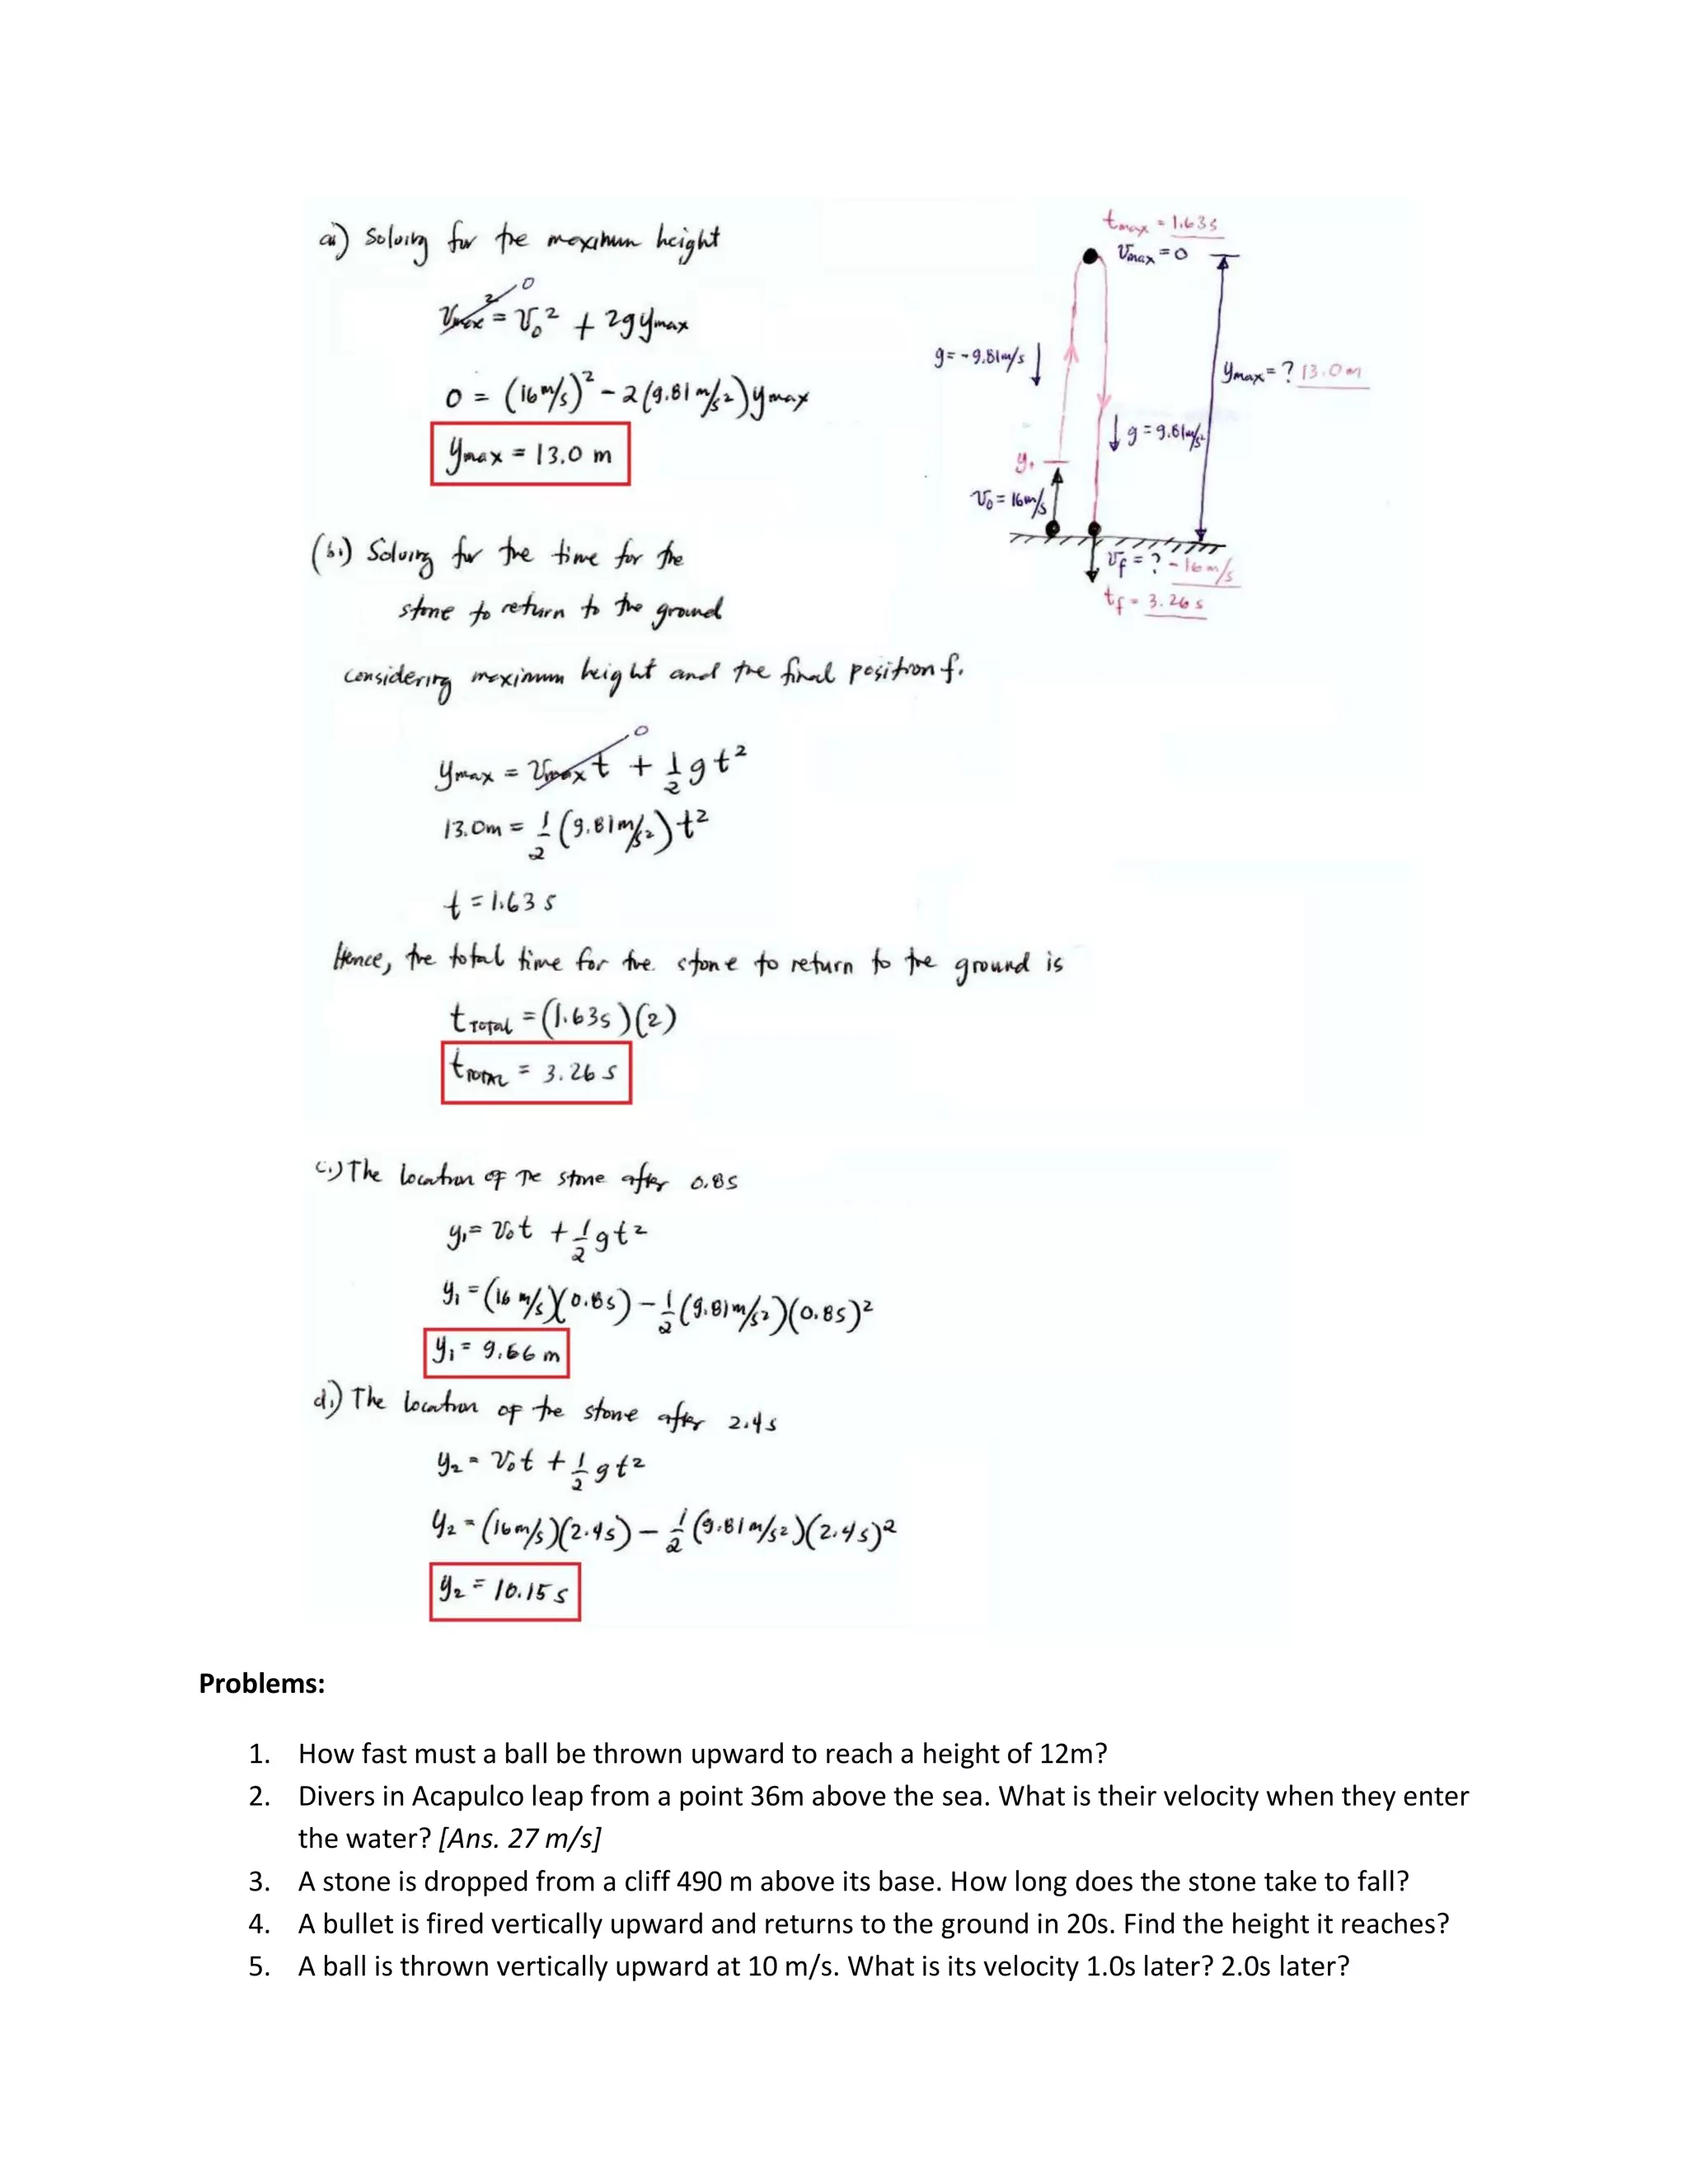 a.) Solving for the maximum height
tmax = 1.63s
vmax = 0
vmax² = v₀² + 2gymax
0
g = -9.81m/s
ymax = ? 13.0m
0 = (16m/s)² - 2(9.81m/s²)ymax
g = 9.81m/s²
ymax = 13.0 m
y₁
v₀ = 16m/s
(b.) Solving for the time for the
stone to return to the ground
vf = ? -16m/s
tf = 3.26s
considering maximum height and the final position f.
0
ymax = vmaxt + 1/2 gt²
13.0m = 1/2 (9.81m/s²)t²
t = 1.63 s
Hence, the total time for the stone to return to the ground is
tTotal = (1.63s)(2)
tTOTAL = 3.26 s
c.) The location of the stone after 0.8s
y₁ = v₀t + 1/2 gt²
y₁ = (16 m/s)(0.8s) - 1/2 (9.81m/s²)(0.8s)²
y₁ = 9.66 m
d.) The location of the stone after 2.4s
y₂ = v₀t + 1/2 gt²
y₂ = (16m/s)(2.4s) - 1/2 (9.81m/s²)(2.4s)²
y₂ = 10.15 s
Problems:
1. How fast must a ball be thrown upward to reach a height of 12m?
2. Divers in Acapulco leap from a point 36m above the sea. What is their velocity when they enter
the water? [Ans. 27 m/s]
3. A stone is dropped from a cliff 490 m above its base. How long does the stone take to fall?
4. A bullet is fired vertically upward and returns to the ground in 20s. Find the height it reaches?
5. A ball is thrown vertically upward at 10 m/s. What is its velocity 1.0s later? 2.0s later?